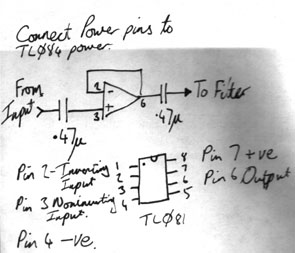 Connect Power pins to
TL084 power.
From
Input
2
-
3
+
6
To Filter
.47μ
.47μ
Pin 2-Inverting
Input
Pin 3 Noninverting
Input.
Pin 4 -ve
1
2
3
4
8
7
6
5
TL081
Pin 7 +ve
Pin 6 Output